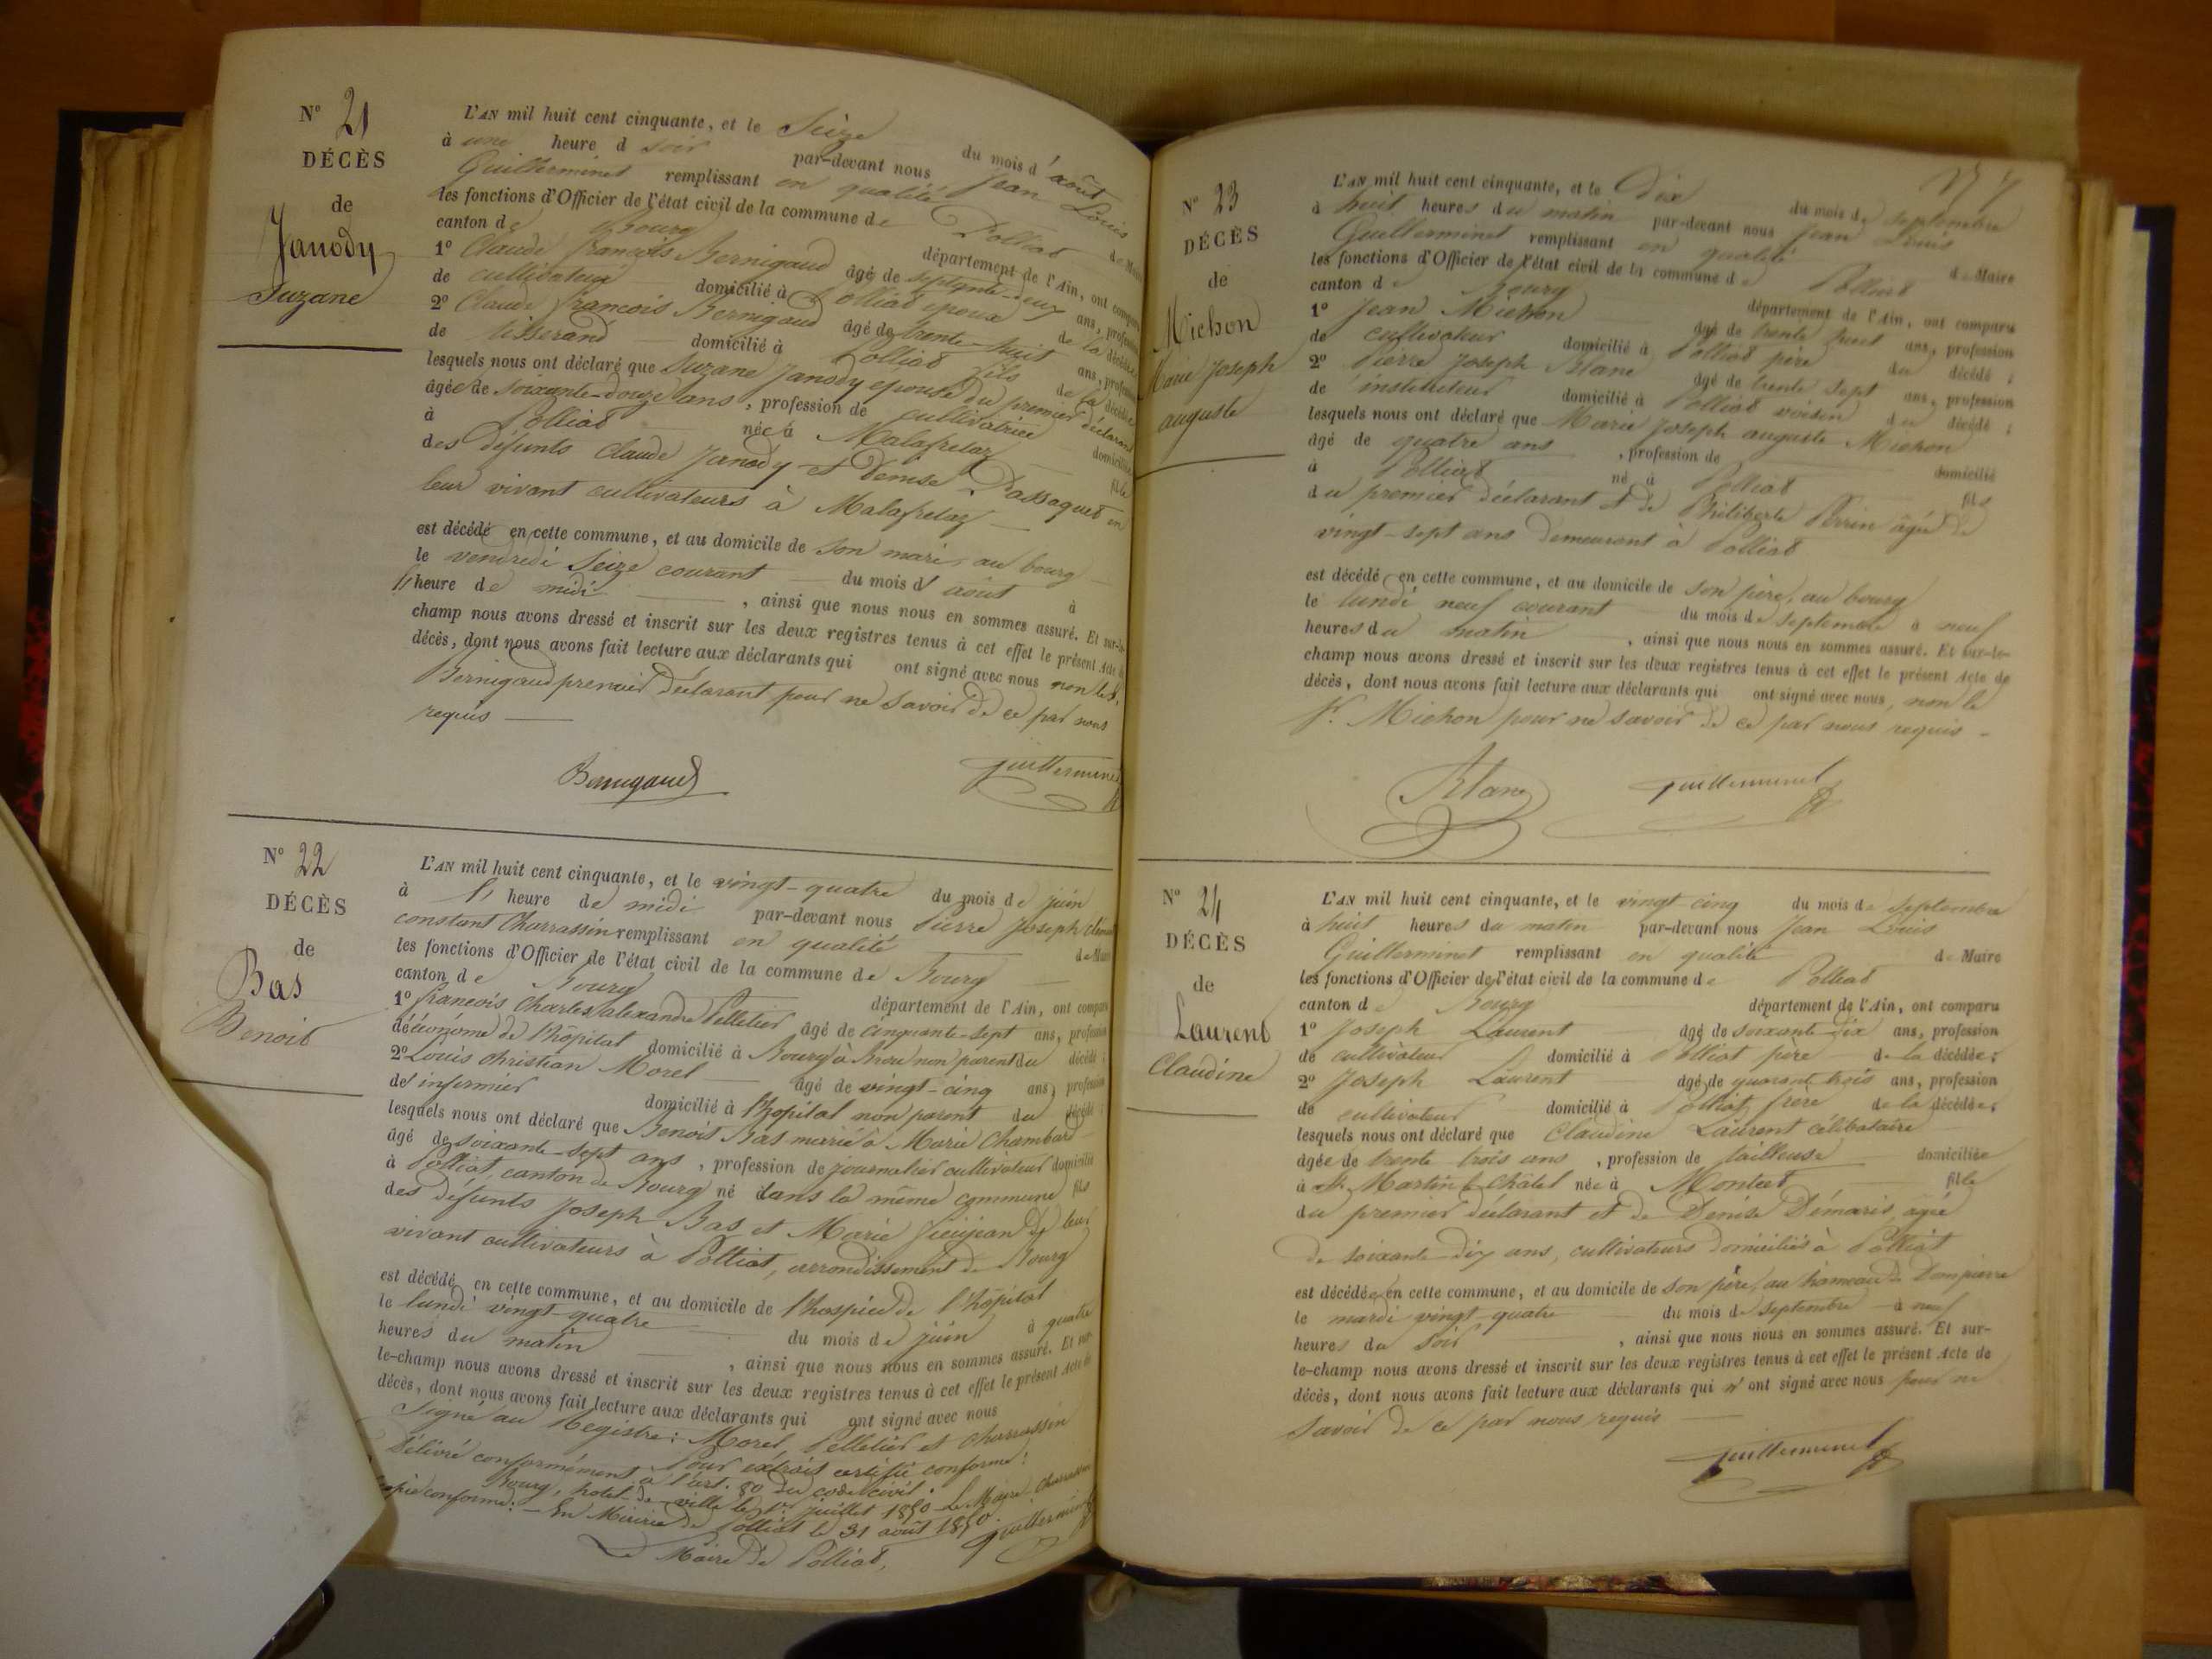 N° 21
DÉCÈS
de
Janody
Suzane
L'AN mil huit cent cinquante, et le Seize du mois d'août
à une heure d soir par-devant nous Jean Louis
Guillerminet remplissant en qualité de Maire
les fonctions d'Officier de l'état civil de la commune de Polliat
canton de Bourg département de l'Ain, ont comparu
1° Claude françois Bernigaud âgé de septante-deux ans, profession
de cultivateur domicilié à Polliat epoux de la décédée
2° Claude françois Bernigaud âgé de trente-huit ans, profession
de tisserand domicilié à Polliat fils de la décédée
lesquels nous ont déclaré que Suzane Janody epouse du premier déclarant
âgée de soixante-douze ans, profession de cultivatrice domiciliée
à Polliat née à Malafretaz fille
des défunts Claude Janody et Denise Passaquet en
leur vivant cultivateurs à Malafretaz
est décédé en cette commune, et au domicile de son mari, au bourg
le vendredi Seize courant du mois d'août à
heure de midi , ainsi que nous nous en sommes assuré. Et sur-le-
champ nous avons dressé et inscrit sur les deux registres tenus à cet effet le présent Acte de
décès, dont nous avons fait lecture aux déclarants qui ont signé avec nous non led.
Bernigaud premier déclarant pour ne savoir de ce par nous
requis
Bernigaud Guillerminet
N° 22
DÉCÈS
de
Bas
Benoit
L'AN mil huit cent cinquante, et le vingt-quatre du mois de juin
à heure de midi par-devant nous Pierre Joseph Clément
constant Charrassin remplissant en qualité de Maire
les fonctions d'Officier de l'état civil de la commune de Bourg
canton de Bourg département de l'Ain, ont comparu
1° françois Charles alexandre Pelletier âgé de cinquante-sept ans, profession
d'économe de l'hôpital domicilié à Bourg à Brou non parent du décédé ;
2° Louis Christian Morel âgé de vingt-cinq ans, profession
de infirmier domicilié à l'hopital non parent du décédé ;
lesquels nous ont déclaré que Benoit Bas marié à Marie Chambard
âgé de soixante-sept ans , profession de journalier cultivateur domicilié
à Polliat, canton de Bourg né dans la même commune fils
des défunts Joseph Bas et Marie de leur
vivant cultivateurs à Polliat, arrondissement de Bourg
est décédé en cette commune, et au domicile de l'hospice de l'hôpital
le lundi vingt-quatre du mois de juin à quatre
heures du matin , ainsi que nous nous en sommes assuré. Et sur-
le-champ nous avons dressé et inscrit sur les deux registres tenus à cet effet le présent Acte de
décès, dont nous avons fait lecture aux déclarants qui ont signé avec nous
Signé au Registre : Morel, Pelletier et Charrassin
Pour extrait certifié conforme :
Délivré conformément à l'art. 80 du code civil.
Bourg, hotel-de-ville le 1er juillet 1850 Le Maire Charrassin
copie conforme : En Mairie de Polliat le 31 août 1850.
Le Maire de Polliat, Guillerminet
N° 23
DÉCÈS
de
Michon
Marie Joseph
auguste
L'AN mil huit cent cinquante, et le Dix du mois de septembre
à huit heures du matin par-devant nous Jean Louis
Guillerminet remplissant en qualité de Maire
les fonctions d'Officier de l'état civil de la commune de Polliat
canton de Bourg département de l'Ain, ont comparu
1° Jean Michon âgé de trente huit ans, profession
de cultivateur domicilié à Polliat père du décédé ;
2° Pierre Joseph Blanc âgé de trente sept ans, profession
de instituteur domicilié à Polliat voisin du décédé ;
lesquels nous ont déclaré que Marie Joseph auguste Michon
âgé de quatre ans , profession de domicilié
à Polliat né à Polliat fils
du premier déclarant et de Philiberte Perrin âgée de
vingt-sept ans demeurant à Polliat
est décédé en cette commune, et au domicile de son père, au bourg
le lundi neuf courant du mois de septembre à neuf
heures du matin , ainsi que nous nous en sommes assuré. Et sur-le-
champ nous avons dressé et inscrit sur les deux registres tenus à cet effet le présent Acte de
décès, dont nous avons fait lecture aux déclarants qui ont signé avec nous, non le
Sr. Michon pour ne savoir de ce par nous requis -
Blanc Guillerminet
N° 24
DÉCÈS
de
Laurent
Claudine
L'AN mil huit cent cinquante, et le vingt-cinq du mois de septembre
à huit heures du matin par-devant nous Jean Louis
Guillerminet remplissant en qualité de Maire
les fonctions d'Officier de l'état civil de la commune de Polliat
canton de Bourg département de l'Ain, ont comparu
1° Joseph Laurent âgé de soixante-dix ans, profession
de cultivateur domicilié à Polliat père de la décédée;
2° Joseph Laurent âgé de quarante-trois ans, profession
de cultivateur domicilié à Polliat frère de la décédée;
lesquels nous ont déclaré que Claudine Laurent célibataire
âgée de trente trois ans , profession de tailleuse domiciliée
à St. Martin le Châtel née à Montcet fille
du premier déclarant et de Denise Démaris, agée
de soixante-dix ans, cultivateurs domiciliés à Polliat
est décédée en cette commune, et au domicile de son père, au hameau de Dompierre
le mardi vingt-quatre du mois de septembre à neuf
heures du soir , ainsi que nous nous en sommes assuré. Et sur-
le-champ nous avons dressé et inscrit sur les deux registres tenus à cet effet le présent Acte de
décès, dont nous avons fait lecture aux déclarants qui n'ont signé avec nous pour ne
savoir de ce par nous requis
Guillerminet